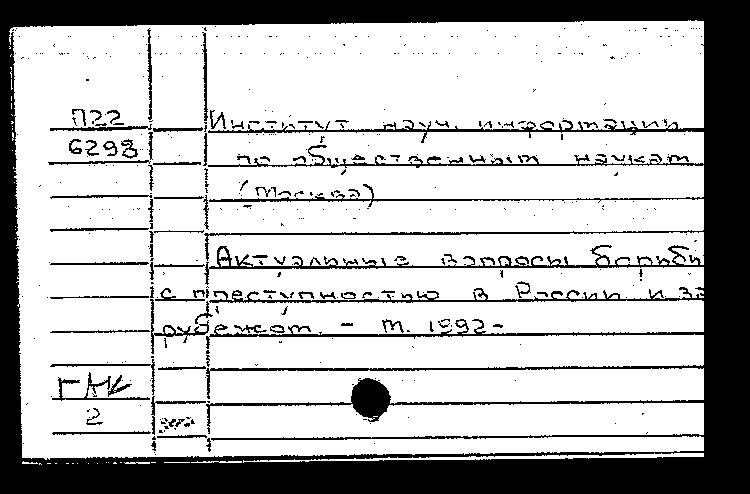 П22
6298
Институт науч. информации
по общественным наукам
(Москва)
Актуальные вопросы борьбы
с преступностью в России и за
рубежом. - М. 1992-
ГАК
2